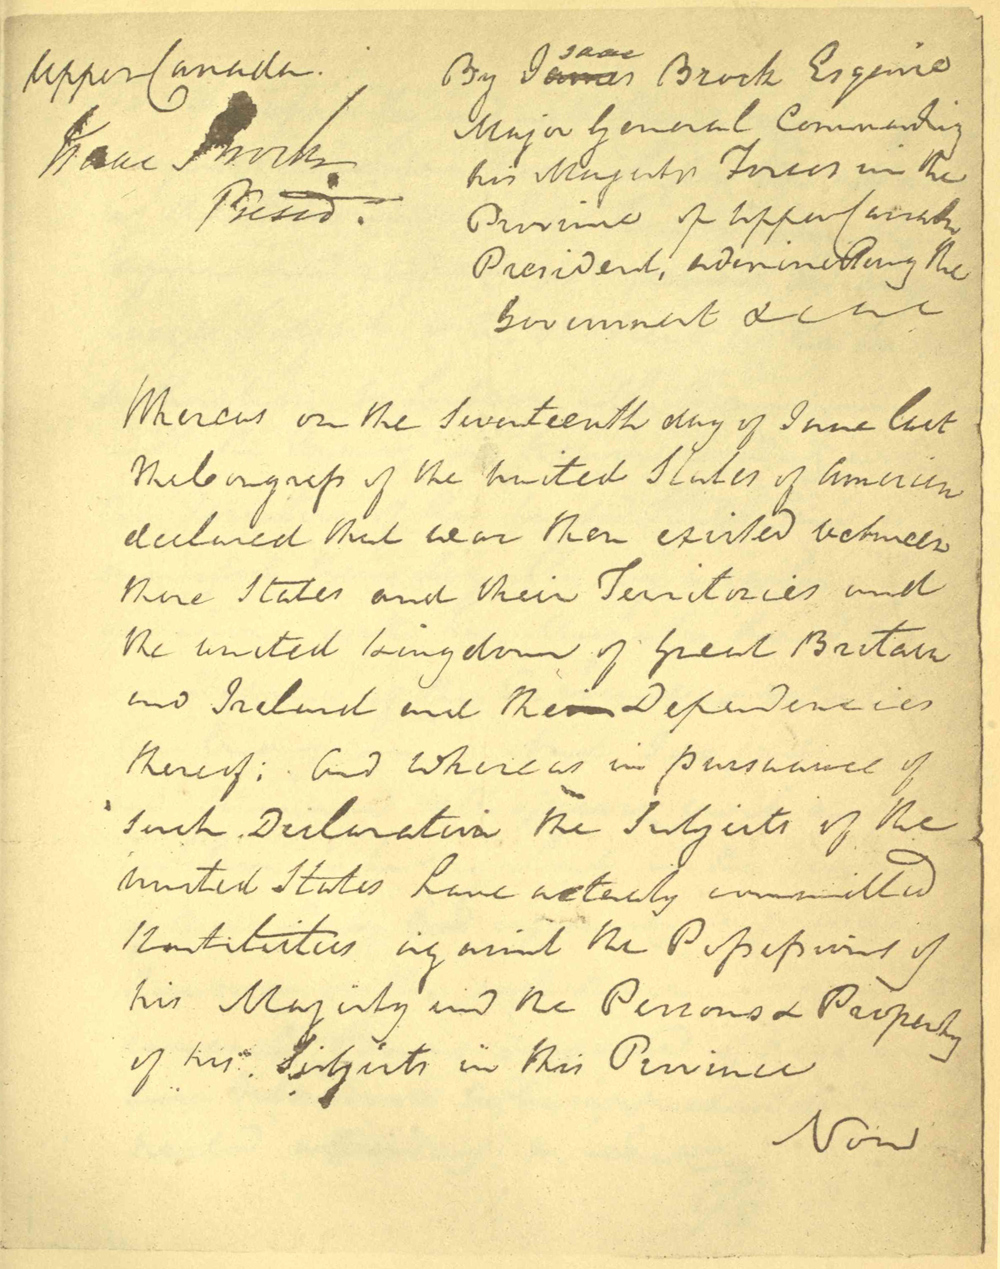 Upper Canada.
Isaac Brock
Presid.
Isaac
By James Brock Esquire
Major General Commanding
his Majestys Forces in the
Province of Upper Canada
President, administering the
Government &c &c
Whereas on the Seventeenth day of June last
the Congress of the United States of America
declared that war then existed between
those States and their Territories and
the united kingdom of Great Britain
and Ireland and their Dependencies
thereof; And whereas in pursuance of
such Declaration the Subjects of the
United States have actually committed
Hostilities against the Possessions of
his Majesty and the Persons & Property
of his Subjects in this Province
Now